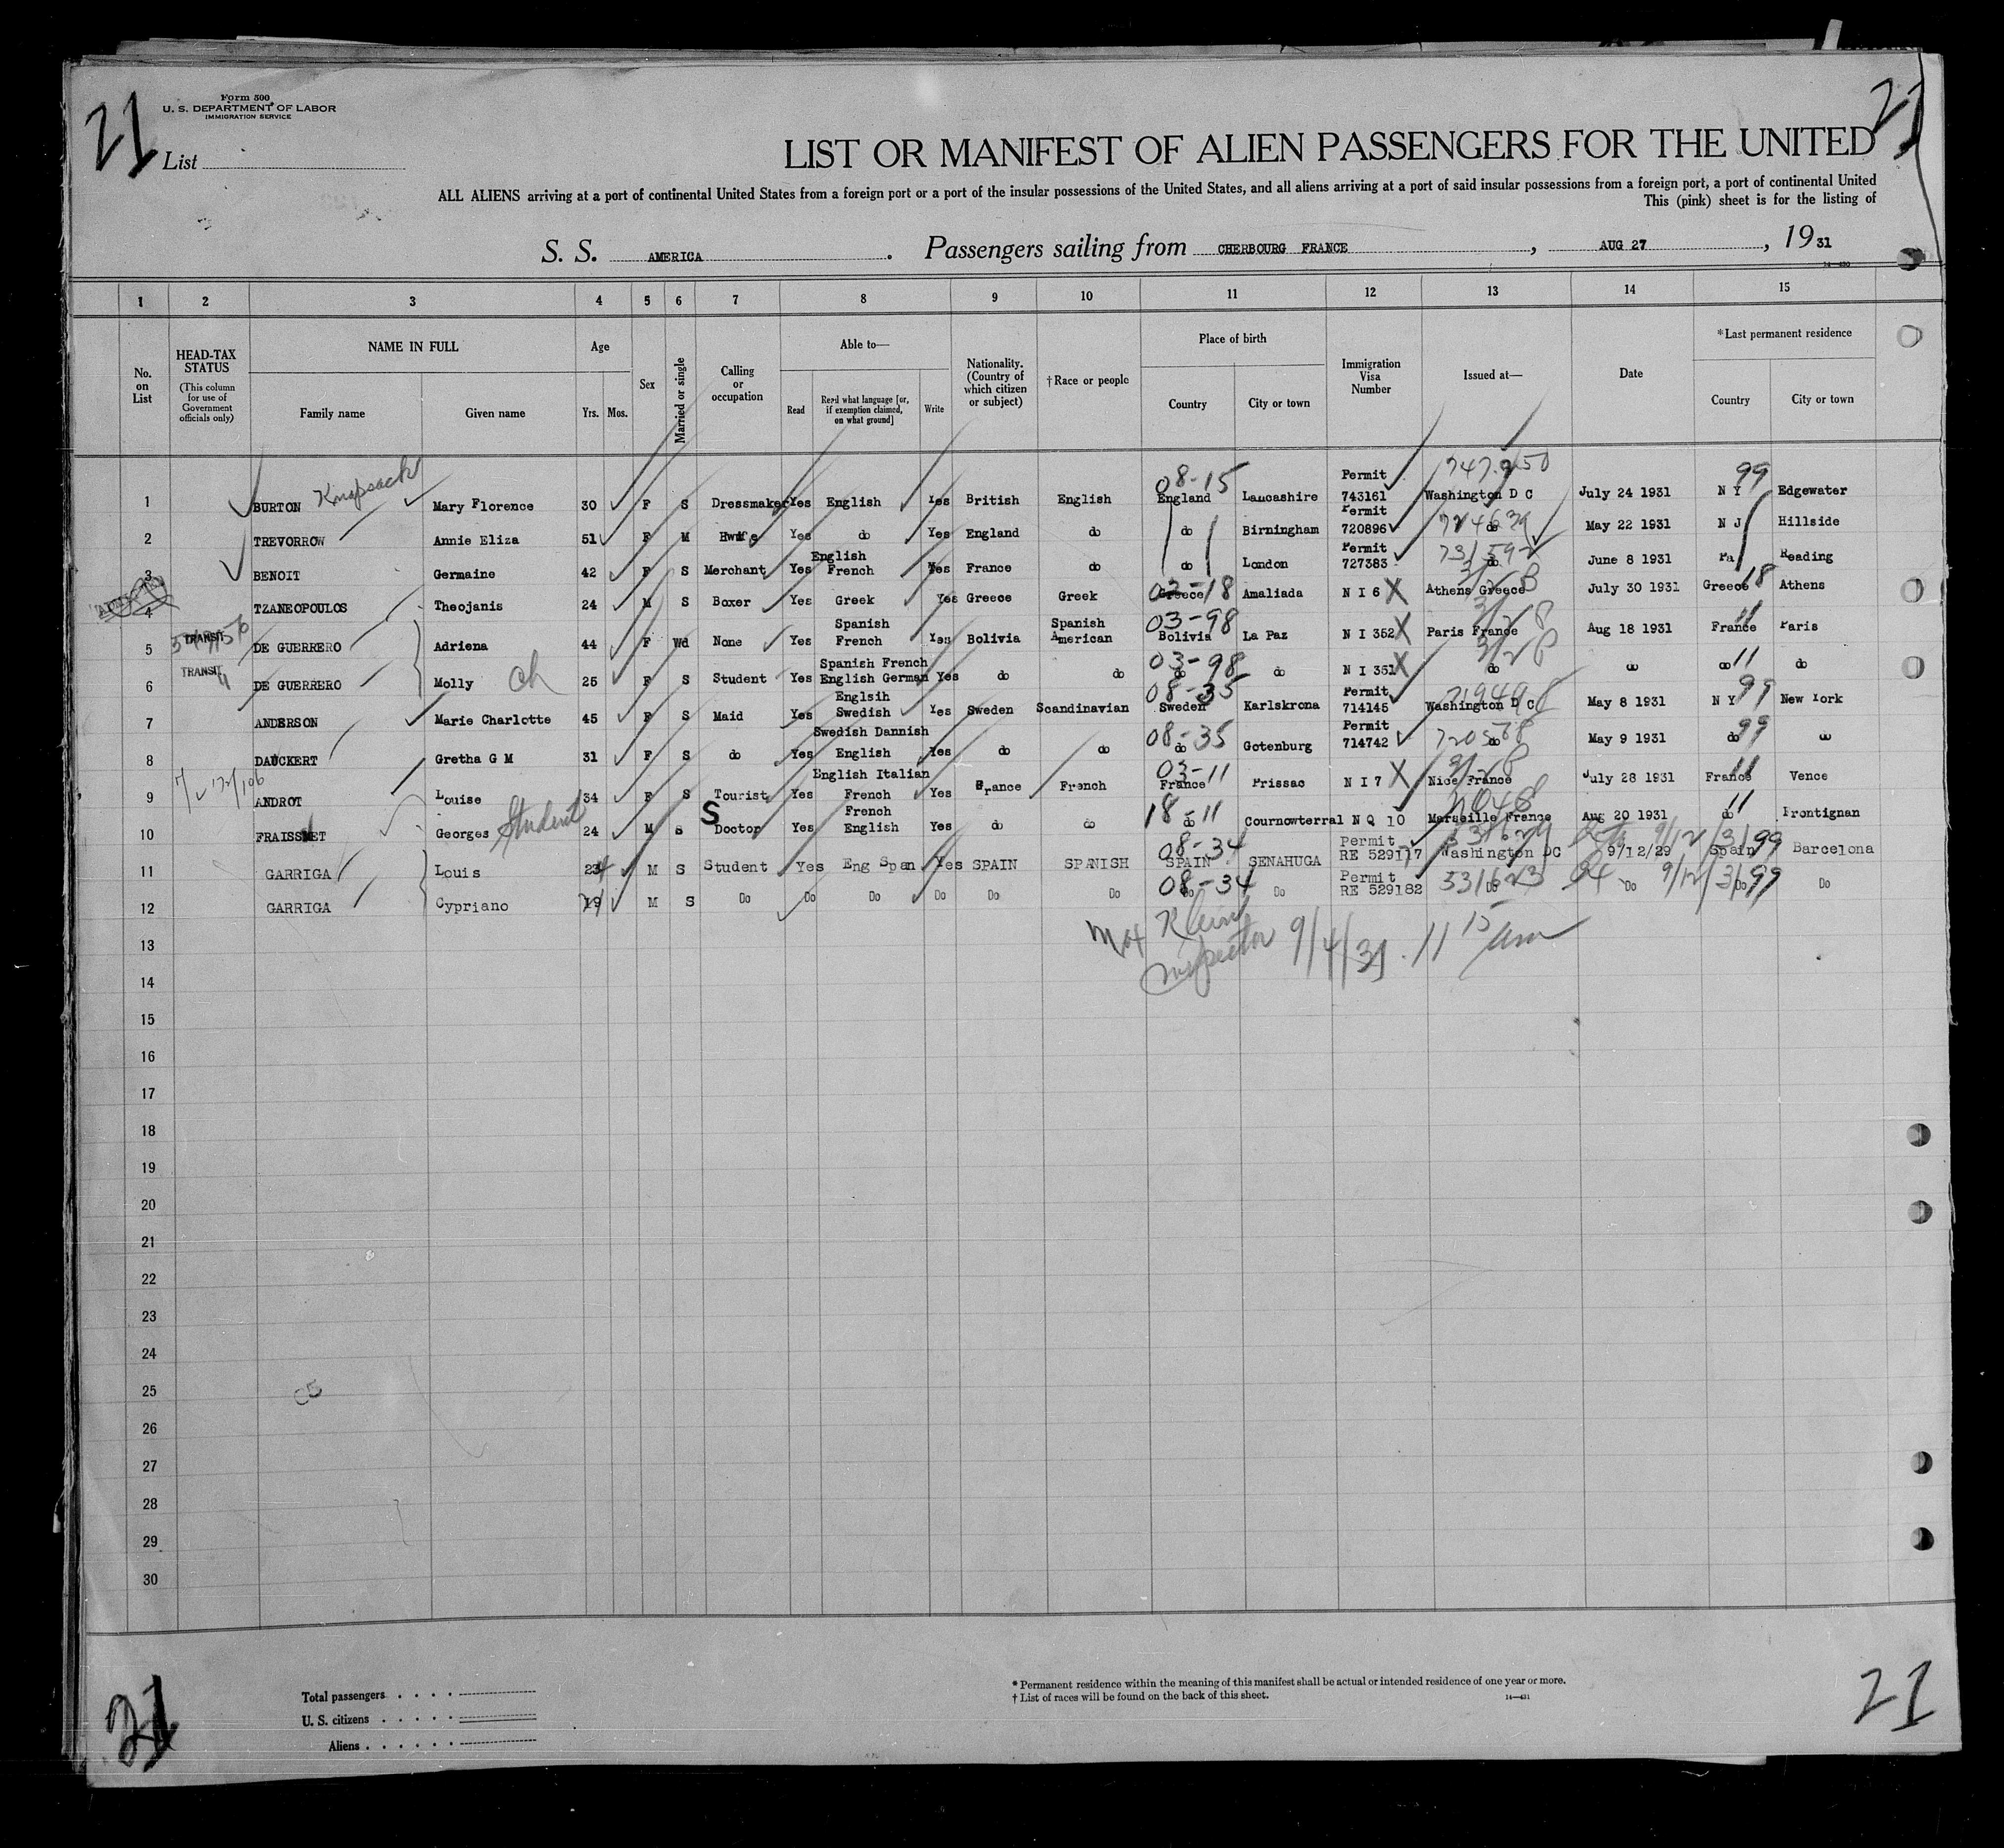 21
21
Form 500
U. S. DEPARTMENT OF LABOR
IMMIGRATION SERVICE
List
LIST OR MANIFEST OF ALIEN PASSENGERS FOR THE UNITED
ALL ALIENS arriving at a port of continental United States from a foreign port or a port of the insular possessions of the United States, and all aliens arriving at a port of said insular possessions from a foreign port, a port of continental United
This (pink) sheet is for the listing of
S. S. AMERICA. Passengers sailing from CHERBOURG FRANCE, AUG 27, 19 31
1 2 3 4 5 6 7 8 9 10 11 12 13 14 15
No. on List
HEAD-TAX STATUS (This column for use of Government officials only)
NAME IN FULL
Family name Given name
Age Yrs. Mos.
Sex
Married or single
Calling or occupation
Able to—
Read Read what language [or, if exemption claimed, on what ground] Write
Nationality. (Country of which citizen or subject)
†Race or people
Place of birth
Country City or town
Immigration Visa Number
Issued at—
Date
*Last permanent residence
Country City or town
1 BURTON Knapsack Mary Florence 30 F S Dressmaker Yes English Yes British English 08-15 England Lancashire Permit 743161 Washington D C July 24 1931 N Y 99 Edgewater
2 TREVORROW Annie Eliza 51 F M Hwife Yes do Yes England do do Birningham Permit 720896 do May 22 1931 N J Hillside
3 BENOIT Germaine 42 F S Merchant Yes English French Yes France do do London Permit 727383 do June 8 1931 Pa Reading
4 TZANEOPOULOS Theojanis 24 M S Boxer Yes Greek Yes Greece Greek Greece Amaliada N I 6 X Athens Greece July 30 1931 Greece 18 Athens
5 TRANSIT DE GUERRERO Adriena 44 F Wd None Yes Spanish French Yes Bolivia Spanish American 03-98 Bolivia La Paz N I 352 X Paris France Aug 18 1931 France 11 Paris
6 TRANSIT DE GUERRERO Molly 25 F S Student Yes Spanish French English German Yes do do 03-98 do do N I 351 X do do do 11 do
7 ANDERSON Marie Charlotte 45 F S Maid Yes Englsih Swedish Yes Sweden Scandinavian 08-35 Sweden Karlskrona Permit 714145 Washington D C May 8 1931 N Y 99 New York
8 DAUCKERT Gretha G M 31 F S do Yes Swedish Dannish English Yes do do 08-35 do Gotenburg Permit 714742 do May 9 1931 do 99 do
9 ANDROT Louise 34 F S Tourist Yes English Italian French Yes France French 03-11 France Prissac N I 7 X Nice France July 28 1931 France 11 Vence
10 FRAISSNET Georges Student 24 M S S Doctor Yes French English Yes do do 18-11 do Cournowterral N Q 10 Marseille France Aug 20 1931 do 11 Frontignan
11 GARRIGA Louis M S Student Yes Eng Span Yes SPAIN SPANISH 08-34 SPAIN SENAHUGA Permit RE 529117 Washington DC 9/12/29 Spain 99 Barcelona
12 GARRIGA Cypriano M S Do Do Do Do Do Do 08-34 Do Do Permit RE 529182 531623 Do Do 9/12/31 Do 99 Do
13 Max Klein
Inspector 9/4/31. 11 15 am
14
15
16
17
18
19
20
21
22
23
24
25
26
27
28
29
30
Total passengers
U. S. citizens
Aliens
* Permanent residence within the meaning of this manifest shall be actual or intended residence of one year or more.
† List of races will be found on the back of this sheet.
14—431
21
21